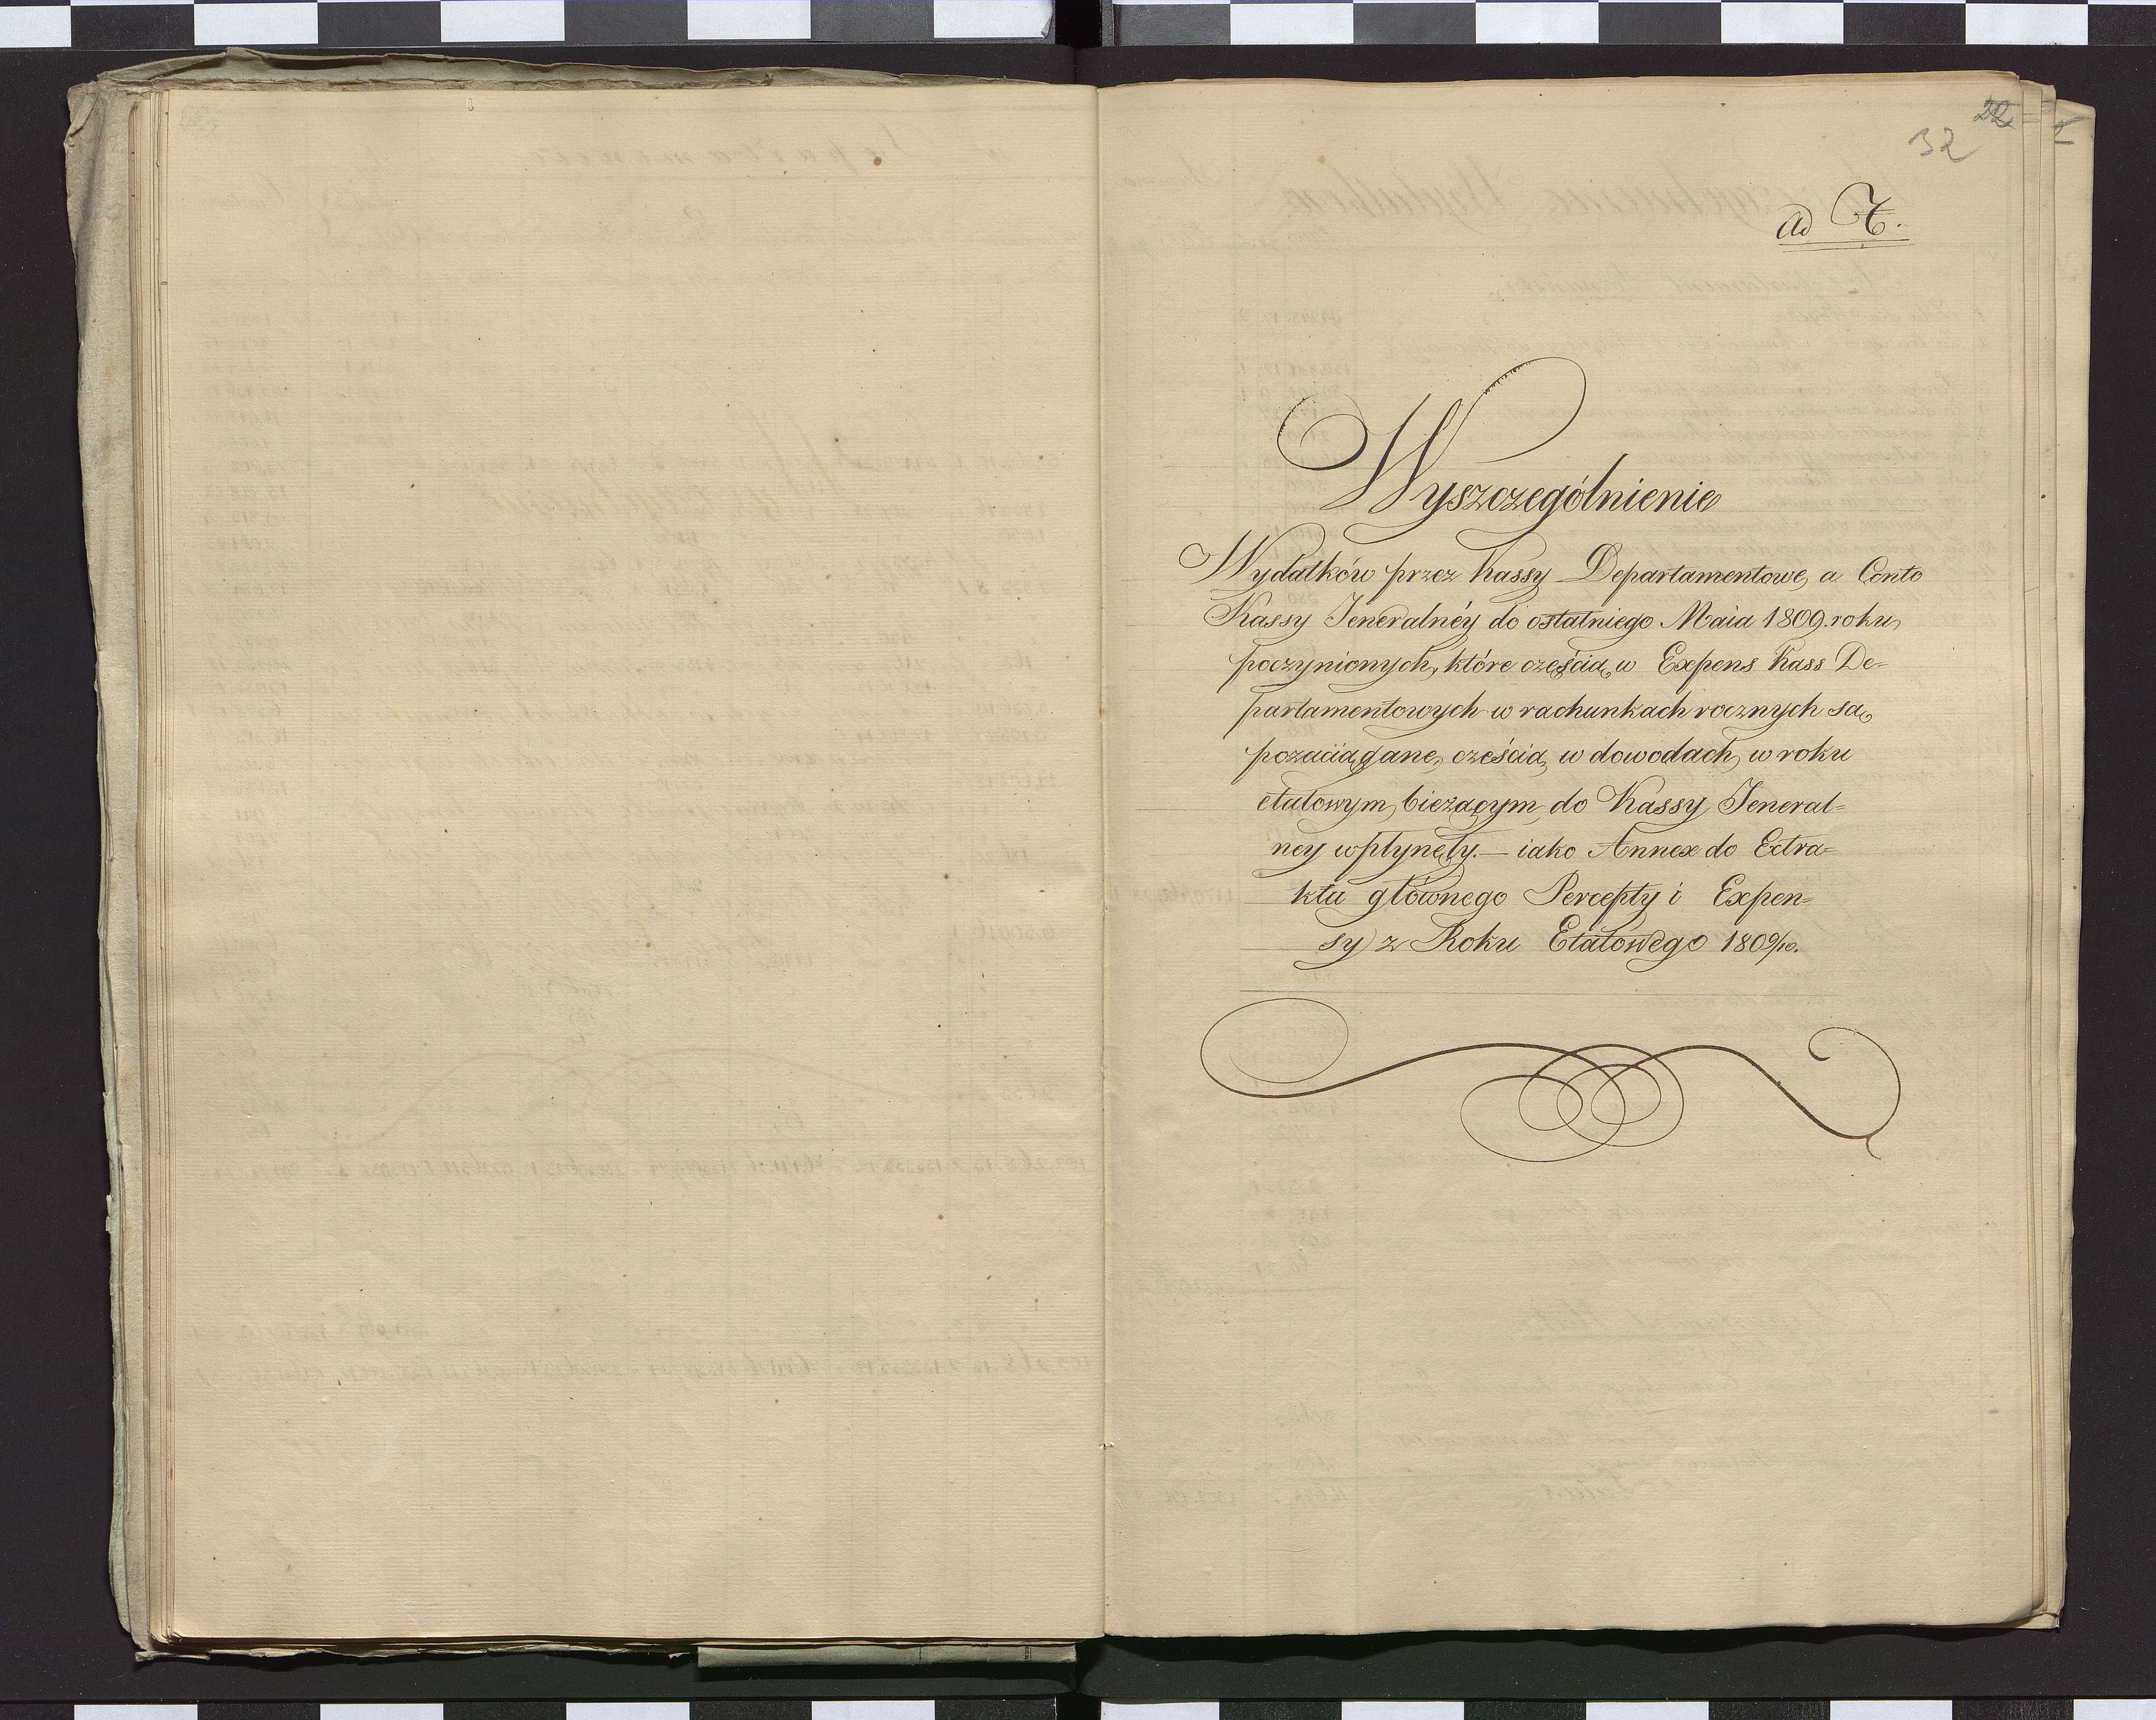 22
32
ad
Wyszczególnienie
Wydatków przez Kassy Departamentowe, a Conto
Kassy Jeneralnéy do ostatniego Maia 1809. roku,
poczynionych, które częścią w Expens Kass De=
partamentowych w rachunkach rocznych są
pozaciągane, częścią w dowodach, w roku
etatowym bieżącym do Kassy Jeneral=
ney wpłynęły. — iako Annex do Extra=
ktu głównego Percepty i Expen=
sy z Roku Etatowego 1809/10.